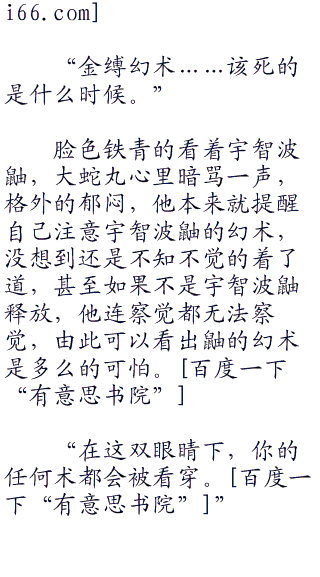 i66.com]
“金缚幻术……该死的
是什么时候。”
脸色铁青的看着宇智波
鼬，大蛇丸心里暗骂一声，
格外的郁闷，他本来就提醒
自己注意宇智波鼬的幻术，
没想到还是不知不觉的着了
道，甚至如果不是宇智波鼬
释放，他连察觉都无法察
觉，由此可以看出鼬的幻术
是多么的可怕。[百度一下
“有意思书院”]
“在这双眼睛下，你的
任何术都会被看穿。[百度一
下“有意思书院”]”